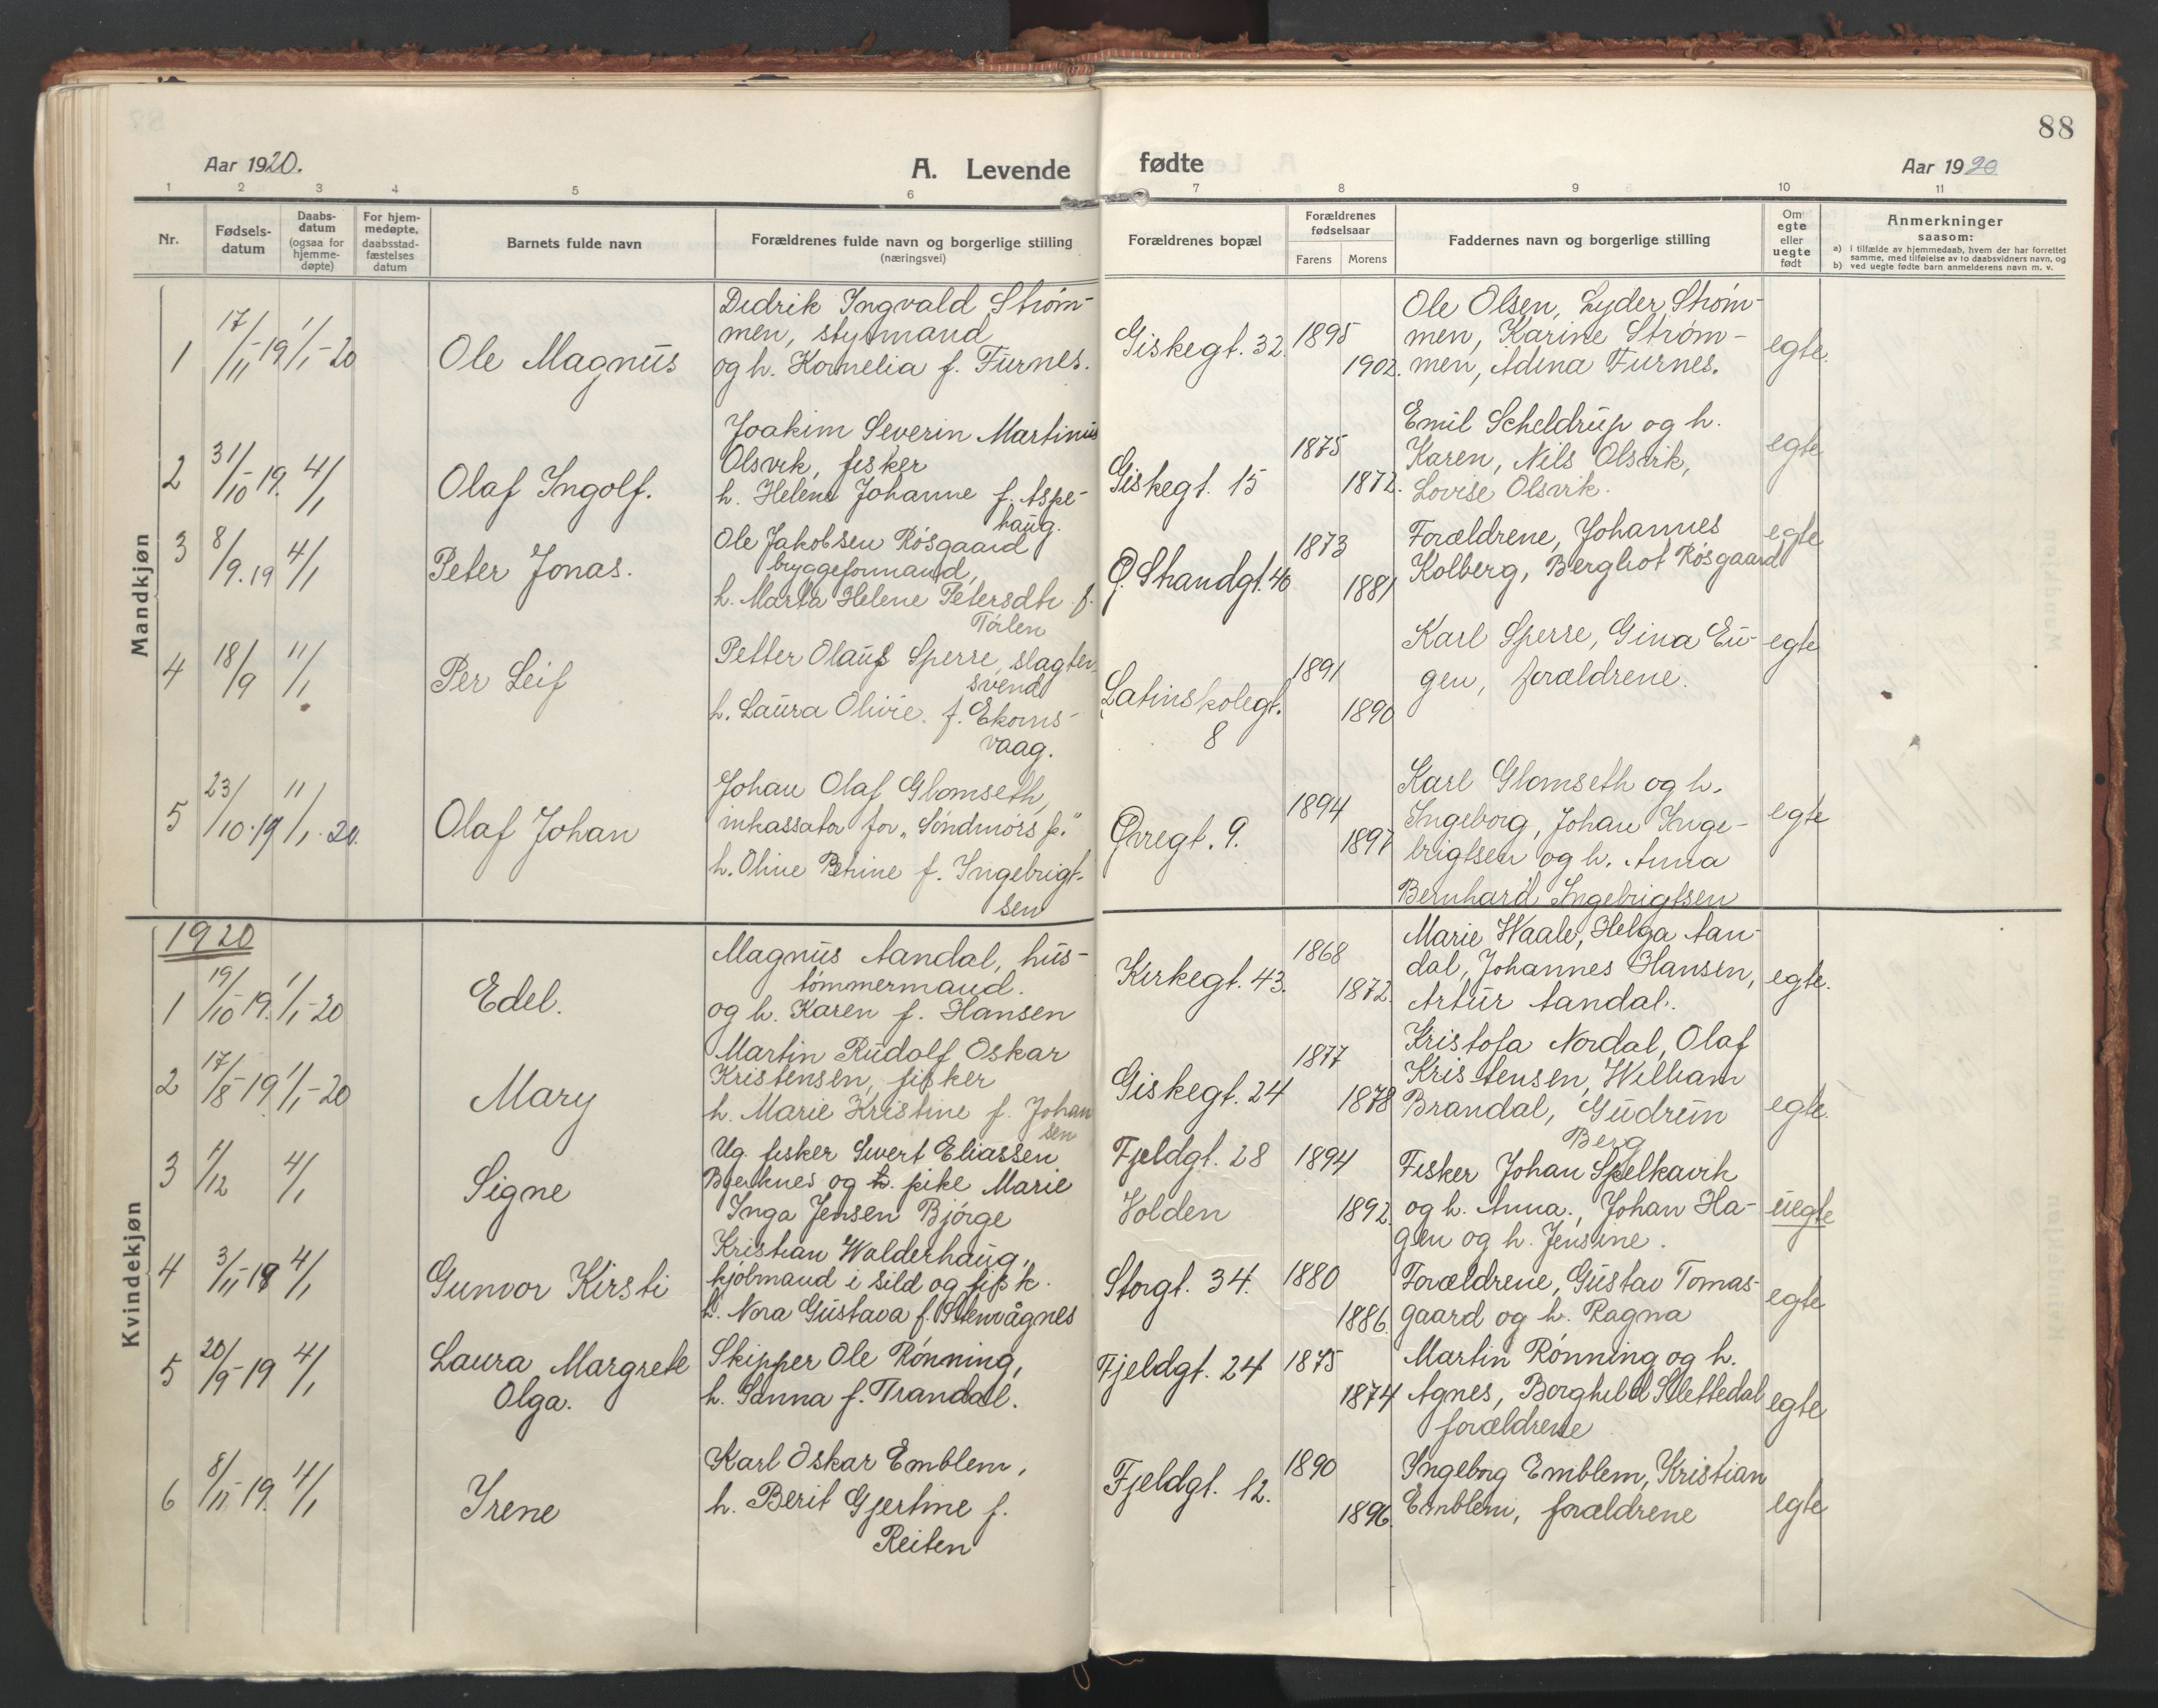 88
Aar 1920.
A. Levende
fødte
Aar 1920
1 2 3 4 5 6 7 8 9 10 11
Nr.
Fødsels-
datum
Daabs-
datum
(ogsaa for
hjemme-
døpte)
For hjem-
medøpte,
daabsstad-
fæstelses
datum
Barnets fulde navn
Forældrenes fulde navn og borgerlige stilling
(næringsvei)
Forældrenes bopæl
Forældrenes
fødselsaar
Farens Morens
Faddernes navn og borgerlige stilling
Om
egte
eller
uegte
født
Anmerkninger
saasom:
a) i tilfælde av hjemmedaab, hvem der har forrettet
samme, med tilføielse av to daabsvidners navn, og
b) ved uegte fødte barn anmelderens navn m. v.
Mandkjøn
1
17/11-19
1/1-20
Ole Magnus
Didrik Ingvald Strøm-
men, styrmand
og h. Kornelia f. Furnes.
Giskegt. 32.
1895
1902.
Ole Olsen, Lyder Strøm-
men, Karine Strøm-
men, Adina Furnes.
egte.
2
31/10-19.
4/1
Olaf Ingolf.
Joakim Severin Martinus
Olsvik, fisker
h. Helene Johanne f. Aspe-
haug.
Giskegt. 15
1875
1872.
Emil Scheldrup og h.
Karen, Nils Olsvik,
Lovise Olsvik.
egte
3
8/9.19
4/1
Peter Jonas.
Ole Jakobsen Røsgaard
bryggeformand,
h. Marta Helene Petersdtr. f.
Tørlen
Ø. Strandgt. 46
1873
1881
Forældrene, Johannes
Kolberg, Bergliot Røsgaard
egte
4
18/9
11/1
Per Leif
Petter Olaus Sperre, slagter-
svend
h. Laura Olivie. f. Ekorns-
vaag.
Latinskolegt.
8
1891
1890
Karl Sperre, Gina Eu-
gen, forældrene.
egte
5
23/10.19
11/1.20.
Olaf Johan
Johan Olaf Glomseth,
inkassator for „Søndmørs p."
h. Oline Petrine f. Ingebrigt-
sen
Øvregt. 9.
1894
1897
Karl Glomseth og h.
Ingeborg, Johan Inge-
brigtsen og h. Anna
Bernhard Ingebrigtsen
egte
Kvindekjøn
1920
1
19/10-19.
1/1-20
Edel.
Magnus Aandal, hus-
tømmermand.
og h. Karen f. Hansen
Kirkegt. 43.
1868
1872.
Marie Waale, Helga Aan-
dal, Johannes Hansen,
Artur Aandal.
egte.
2
17/8-19
1/1-20
Mary
Martin Rudolf Oskar
Kristensen, fisker
h. Marie Kristine f. Johan
sen
Giskegt. 24
1877
1878
Kristofa Nordal, Olaf
Kristensen, William
Brandal, Gudrun
Berg
egte.
3
1/12
4/1
Signe
Ug. fisker Sivert Eliassen
Bjerknes og h. pike Marie
Inga Jensen Bjørge
Fjeldgt. 28
Volden
1894
1892.
Fisker Johan Spelkavik
og h. Anna., Johan Ha-
gen og h. Jensine.
uegte
4
3/11-19
4/1
Gunvor Kirsti
Kristian Walderhaug,
kjøbmand i sild og fisk.
h. Nora Gustava f. Stenvågnes
Storgt. 34.
1880
1886.
Forældrene, Gustav Tomas-
gaard og h. Ragna
egte
5
20/9-19
4/1
Laura Margrete
Olga.
Skipper Ole Rønning,
h. Sanna f. Trandal.
Fjeldgt. 24
1875
1874
Martin Rønning og h.
Agnes, Borghild Slettedal
forældrene
egte
6
8/11-19.
11/1
Irene
Karl Oskar Emblem,
h. Berit Gjertine f.
Reiten
Fjeldgt. 12.
1890
1896.
Ingeborg Emblem, Kristian
Emblem, forældrene
egte